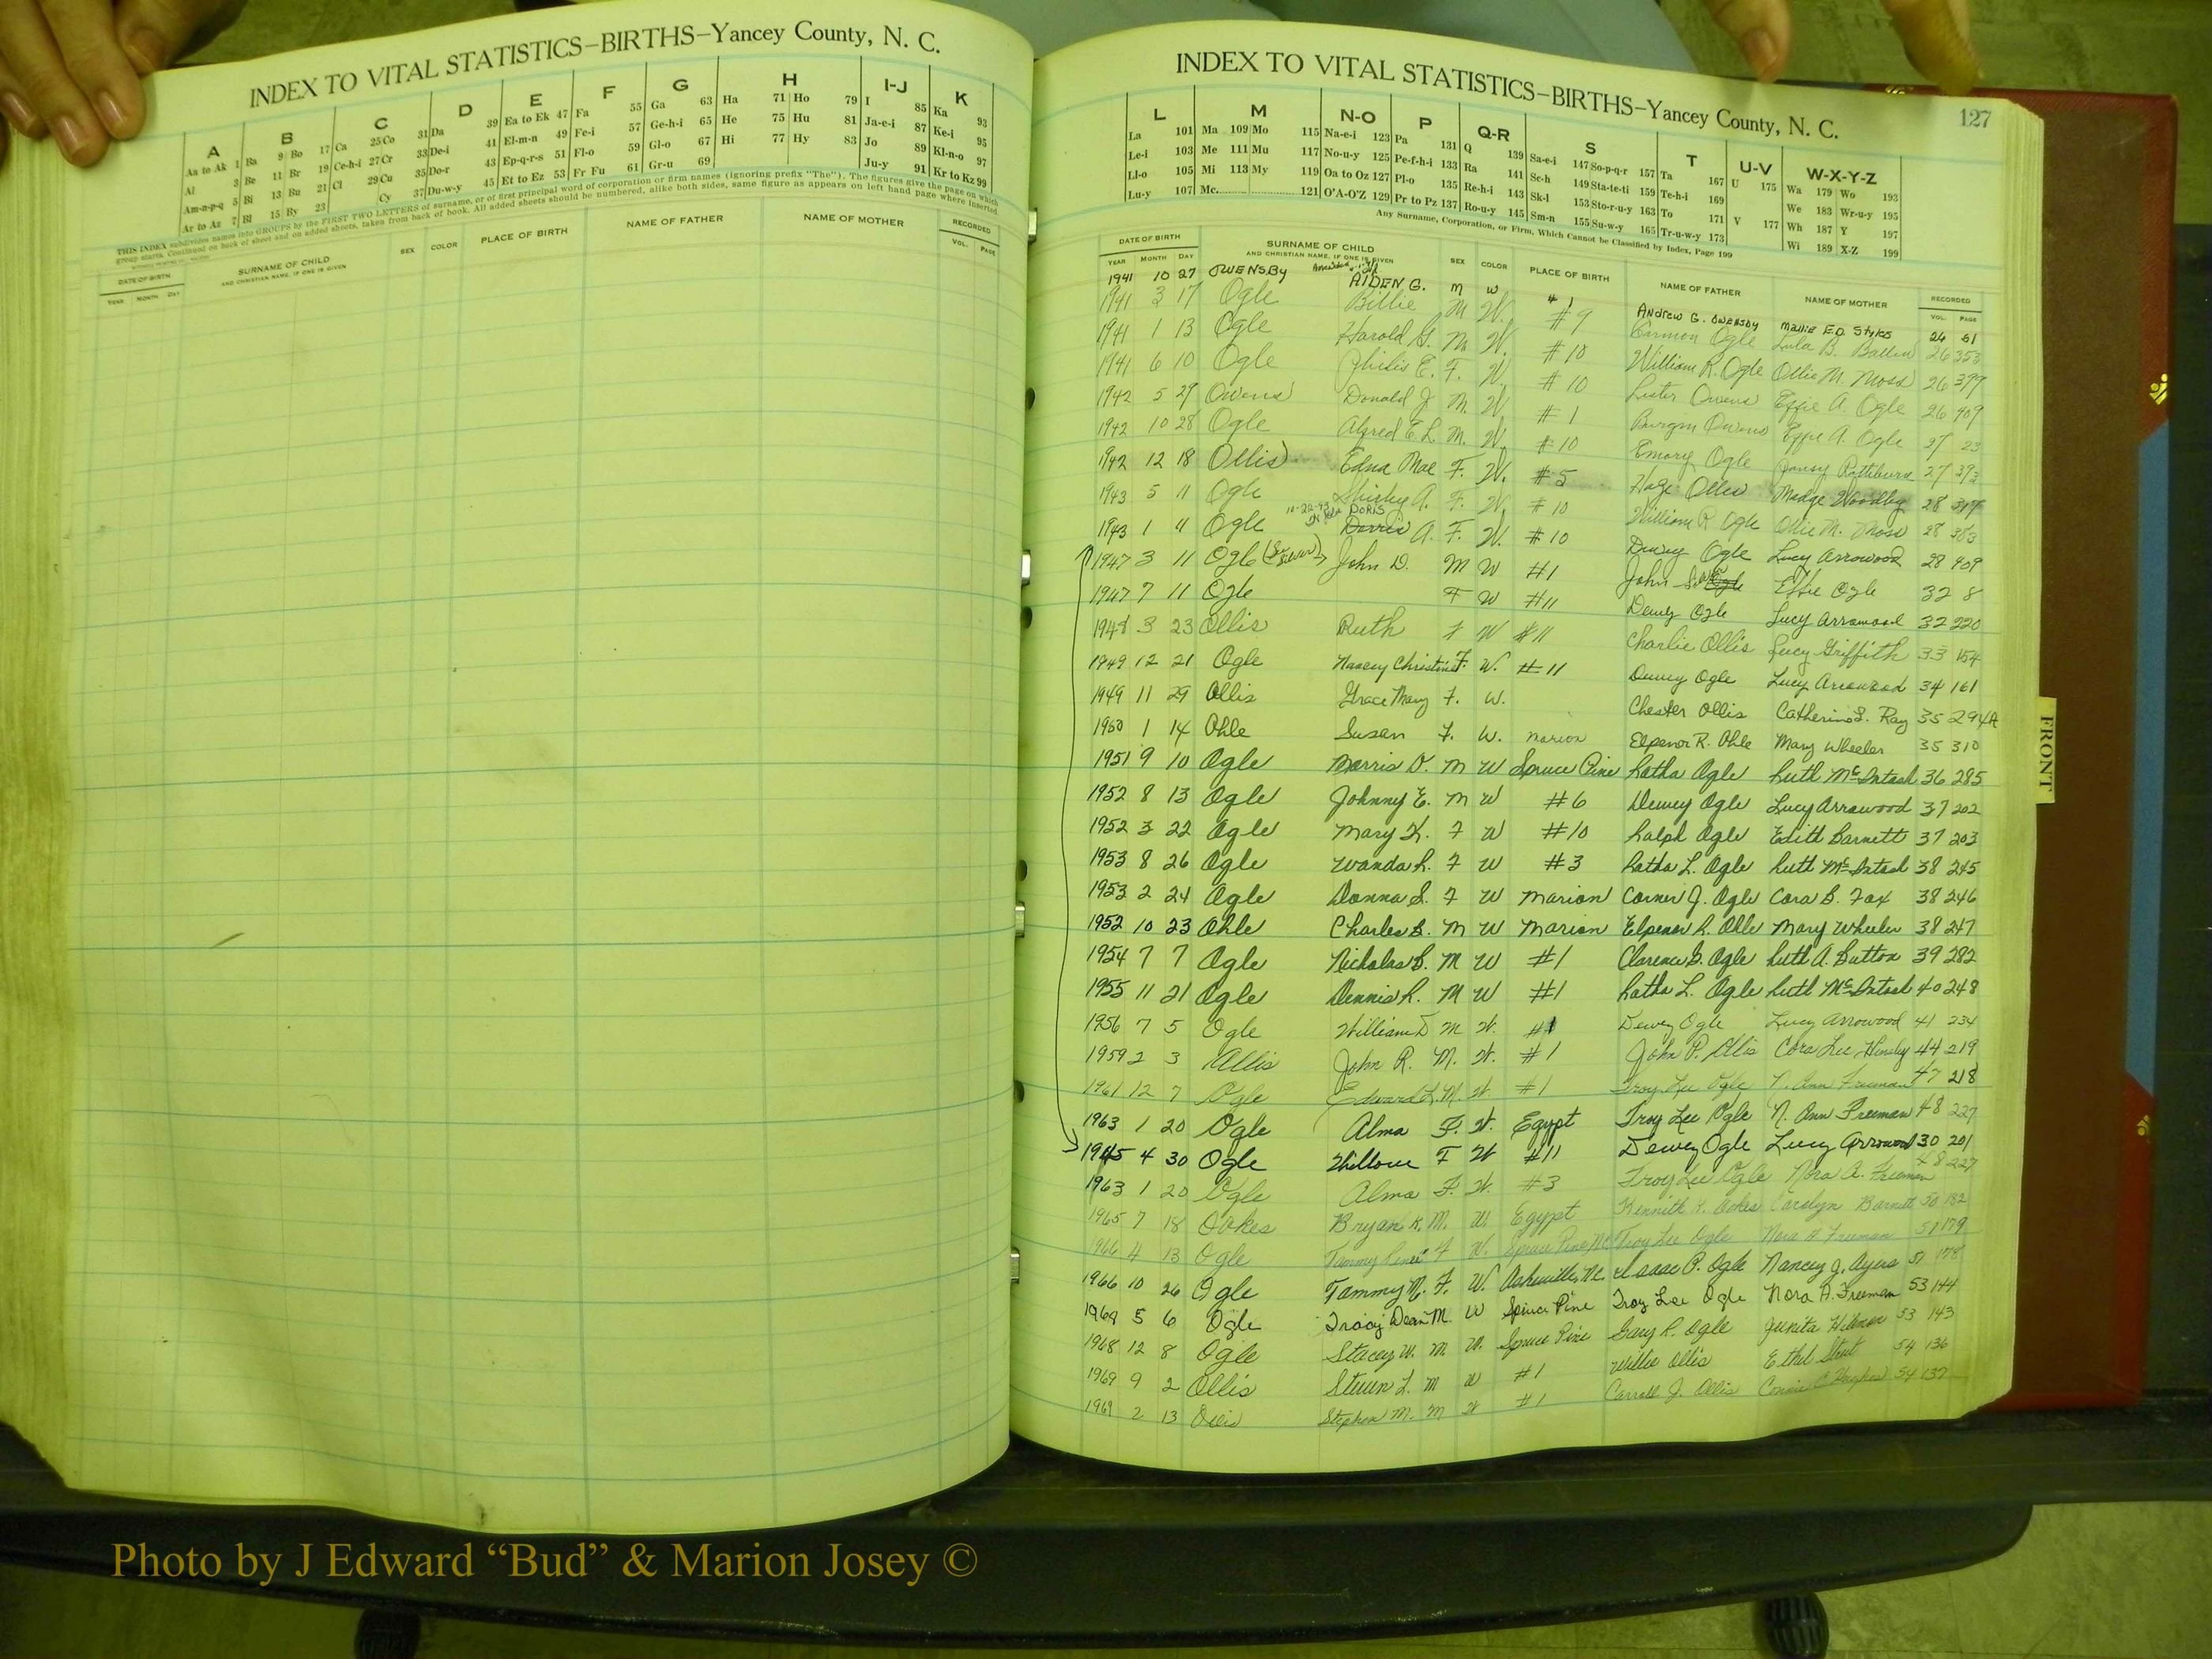 INDEX TO VITAL STATISTICS–BIRTHS–Yancey County, N. C.
A B C D E F G H I-J K
Aa to Ak 1 Ba 9 Bo 17 Ca 25 Co 31 Da 39 Ea to Ek 47 Fa 55 Ga 63 Ha 71 Ho 79 I 85 Ka 93
Al 3 Be 11 Br 19 Ce-h-i 27 Cr 33 De-i 41 El-m-n 49 Fe-i 57 Ge-h-i 65 He 75 Hu 81 Ja-e-i 87 Ke-i 95
Am-n-p-q 5 Bi 13 Bu 21 Cl 29 Cu 35 Do-r 43 Ep-q-r-s 51 Fl-o 59 Gl-o 67 Hi 77 Hy 83 Jo 89 Kl-n-o 97
Ar to Az 7 Bl 15 By 23 Cy 37 Du-w-y 45 Et to Ez 53 Fr Fu 61 Gr-u 69 Ju-y 91 Kr to Kz 99
THIS INDEX subdivides names into GROUPS by the FIRST TWO LETTERS of surname, or of first principal word of corporation or firm names (ignoring prefix "The"). The figures give the page on which
group starts. Continued on back of sheet and on added sheets, taken from back of book. All added sheets should be numbered, alike both sides, same figure as appears on left hand page where inserted.
DATE OF BIRTH SURNAME OF CHILD SEX COLOR PLACE OF BIRTH NAME OF FATHER NAME OF MOTHER RECORDED
YEAR MONTH DAY AND CHRISTIAN NAME, IF ONE IS GIVEN VOL. PAGE
INDEX TO VITAL STATISTICS–BIRTHS–Yancey County, N. C. 127
L M N-O P Q-R S T U-V W-X-Y-Z
La 101 Ma 109 Mo 115 Na-e-i 123 Pa 131 Q 139 Sa-e-i 147 So-p-q-r 157 Ta 167 U 175 Wa 179 Wo 193
Le-i 103 Me 111 Mu 117 No-u-y 125 Pe-f-h-i 133 Ra 141 Sc-h 149 Sta-te-ti 159 Te-h-i 169 We 183 Wr-u-y 195
Ll-o 105 Mi 113 My 119 Oa to Oz 127 Pl-o 135 Re-h-i 143 Sk-l 153 Sto-r-u-y 163 To 171 V 177 Wh 187 Y 197
Lu-y 107 Mc 121 O'A-O'Z 129 Pr to Pz 137 Ro-u-y 145 Sm-n 155 Su-w-y 165 Tr-u-w-y 173 Wi 189 X-Z 199
Any Surname, Corporation, or Firm, Which Cannot be Classified by Index, Page 199
DATE OF BIRTH SURNAME OF CHILD SEX COLOR PLACE OF BIRTH NAME OF FATHER NAME OF MOTHER RECORDED
YEAR MONTH DAY AND CHRISTIAN NAME, IF ONE IS GIVEN VOL. PAGE
1941 10 27 OWENSBy AIDEN G. m w #1 ANDREW G. OWENSBY MALLIE ED. Styles 26 61
1941 3 17 Ogle Billie M W. #9 Ogle Lula B. 26 353
1941 1 13 Ogle Harold G. M. W. #10 William R. Ogle Ollie M. Moss 26 399
1941 6 10 Ogle E. F. W. #10 Lester Owens Effie A. Ogle 26 409
1942 5 27 Owens Donald J M. W. #1 Burgin Owens Effie A. Ogle 27 23
1942 10 28 Ogle Alfred E. L. M. W. #10 Emory Ogle 27 393
1942 12 18 Ollis Edna Mae F. W. #5 Ollis Madge Woodby 28
1943 5 11 Ogle Shirley A. F. W. #10 William R Ogle Ollie M. Moss 28 363
1943 1 4 Ogle DORIS A. F. W. #10 Dewey Ogle Lucy Arrowood 28 409
1947 3 11 Ogle John D. M W #1 John Effie Ogle 32 8
1947 7 11 Ogle F W #11 Dewey Ogle Lucy Arrowood 32 220
1948 3 23 Ollis Ruth F W #11 Charlie Ollis Lucy Griffith 33 154
1949 12 21 Ogle Nancy Christine F. W. #11 Dewey Ogle Lucy Arrowood 34 161
1949 11 29 Ollis Grace Mary F. W. Chester Ollis Catherine S. Ray 35 294A
1950 1 14 Ohle Susan F. W. Marion Elpenor R. Ohle Mary Wheeler 35 310
1951 9 10 Ogle Morris D. M W Spruce Pine Ratha Ogle Ruth McIntosh 36 285
1952 8 13 Ogle Johnny E. M W #6 Dewey Ogle Lucy Arrowood 37 202
1952 3 22 Ogle Mary K. F W #10 Ralph Ogle Edith Barnett 37 203
1953 8 26 Ogle Wanda R. F W #3 Ratha L. Ogle Ruth McIntosh 38 245
1953 2 24 Ogle Donna S. F W Marion J. Ogle Cora B. Fox 38 246
1952 10 23 Ohle Charles B. M W Marion Elpenor R. Ohle Mary Wheeler 38 247
1954 7 7 Ogle Nicholas B. M W #1 Clarence B. Ogle Ruth A. Button 39 282
1955 11 21 Ogle Dennis R. M W #1 Ratha L. Ogle Ruth McIntosh 40 248
1956 7 5 Ogle William D M W. #1 Dewey Ogle Lucy Arrowood 41 234
1959 2 3 Ollis John R. M. W. #1 John P. Ollis Cora Lee Hensley 44 219
1961 12 7 Ogle Edward L. M. W #1 Troy Lee Ogle N. Ann Freeman 47 218
1963 1 20 Ogle Alma F. W. Egypt Troy Lee Ogle N. Ann Freeman 48 227
1945 4 30 Ogle F W #11 Dewey Ogle Lucy Arrowood 30 201
1963 1 20 Ogle Alma F. W. #3 Troy Lee Ogle Nora A. Freeman 48 227
1965 7 18 Oakes Bryan K. M. W. Egypt Kenneth Oakes Carolyn Barnett 50 182
1966 4 13 Ogle Tammy Renee F W. Spruce Pine NC Troy Lee Ogle Nora A Freeman 51 179
1966 10 26 Ogle Tammy M. F. W. Asheville, NC. Isaac P. Ogle Nancy J. Ayers 51 178
1969 5 6 Ogle Tracy Dean M. W Spruce Pine Troy Lee Ogle Nora A. Freeman 53 144
1968 12 8 Ogle Stacey W. M W. Spruce Pine Gary R. Ogle Junita 53 143
1969 9 2 Ollis Steven L. M W #1 Willie Ollis Ethel 54 136
1969 2 13 Ollis Stephen M. M W #1 Carroll J. Ollis Connie Hughes 54 137
FRONT
Photo by J Edward “Bud” & Marion Josey ©